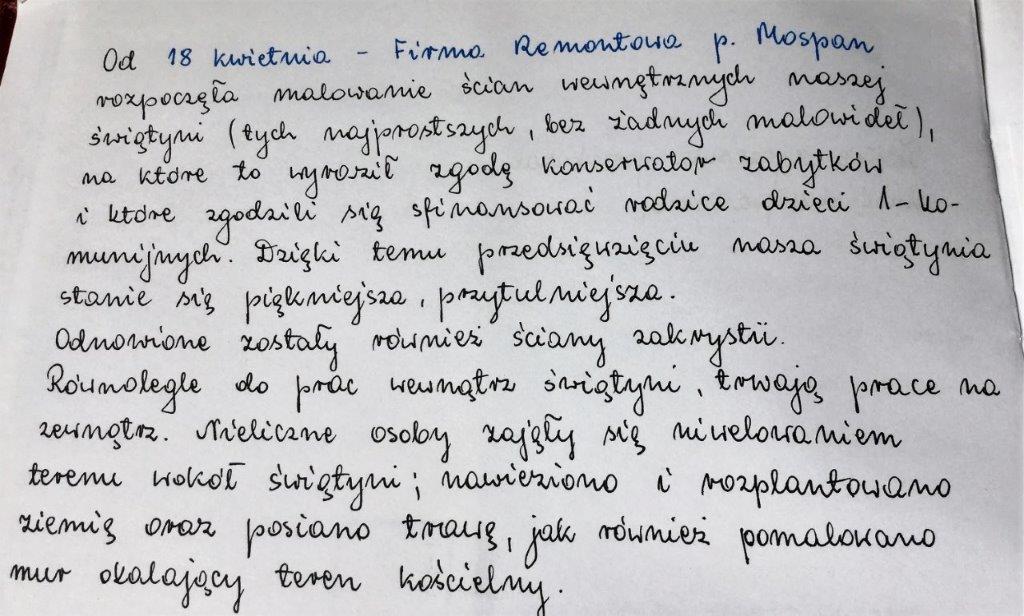 Od 18 kwietnia - Firma Remontowa p. Mospan
rozpoczęła malowanie ścian wewnętrznych naszej
świątyni (tych najprostszych, bez żadnych malowideł),
na które to wyraził zgodę konserwator zabytków
i które zgodzili się sfinansować rodzice dzieci 1-ko-
munijnych. Dzięki temu przedsięwzięciu nasza świątynia
stanie się piękniejsza, przytulniejsza.
Odnowione zostały również ściany zakrystii.
Równolegle do prac wewnątrz świątyni, trwają prace na
zewnątrz. Nieliczne osoby zajęły się niwelowaniem
terenu wokół świątyni; nawieziono i rozplantowano
ziemię oraz posiano trawę, jak również pomalowano
mur okalający teren kościelny.